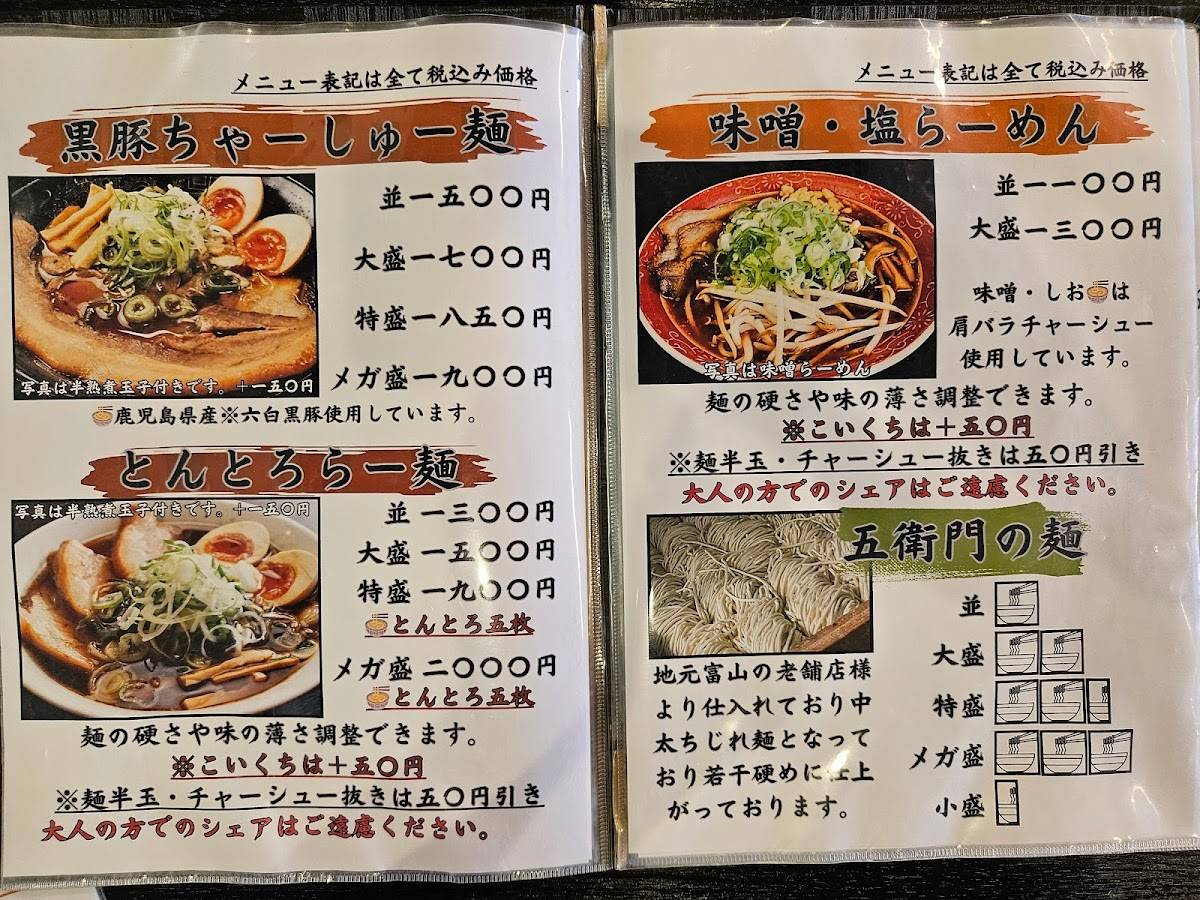 メニュー表記は全て税込み価格
黒豚ちゃーしゅー麺
並一五〇〇円
大盛一七〇〇円
特盛一八五〇円
メガ盛一九〇〇円
写真は半熟煮玉子付きです。＋一五〇円
鹿児島県産※六白黒豚使用しています。
とんとろらー麺
写真は半熟煮玉子付きです。＋一五〇円
並 一三〇〇円
大盛 一五〇〇円
特盛 一九〇〇円
とんとろ五枚
メガ盛 二〇〇〇円
とんとろ五枚
麺の硬さや味の薄さ調整できます。
※こいくちは＋五〇円
※麺半玉・チャーシュー抜きは五〇円引き
大人の方でのシェアはご遠慮ください。
メニュー表記は全て税込み価格
味噌・塩らーめん
並一一〇〇円
大盛一三〇〇円
味噌・しおは
肩バラチャーシュー
使用しています。
写真は味噌らーめん
麺の硬さや味の薄さ調整できます。
※こいくちは＋五〇円
※麺半玉・チャーシュー抜きは五〇円引き
大人の方でのシェアはご遠慮ください。
五衛門の麺
地元富山の老舗店様
より仕入れており中
太ちじれ麺となって
おり若干硬めに仕上
がっております。
並
大盛
特盛
メガ盛
小盛